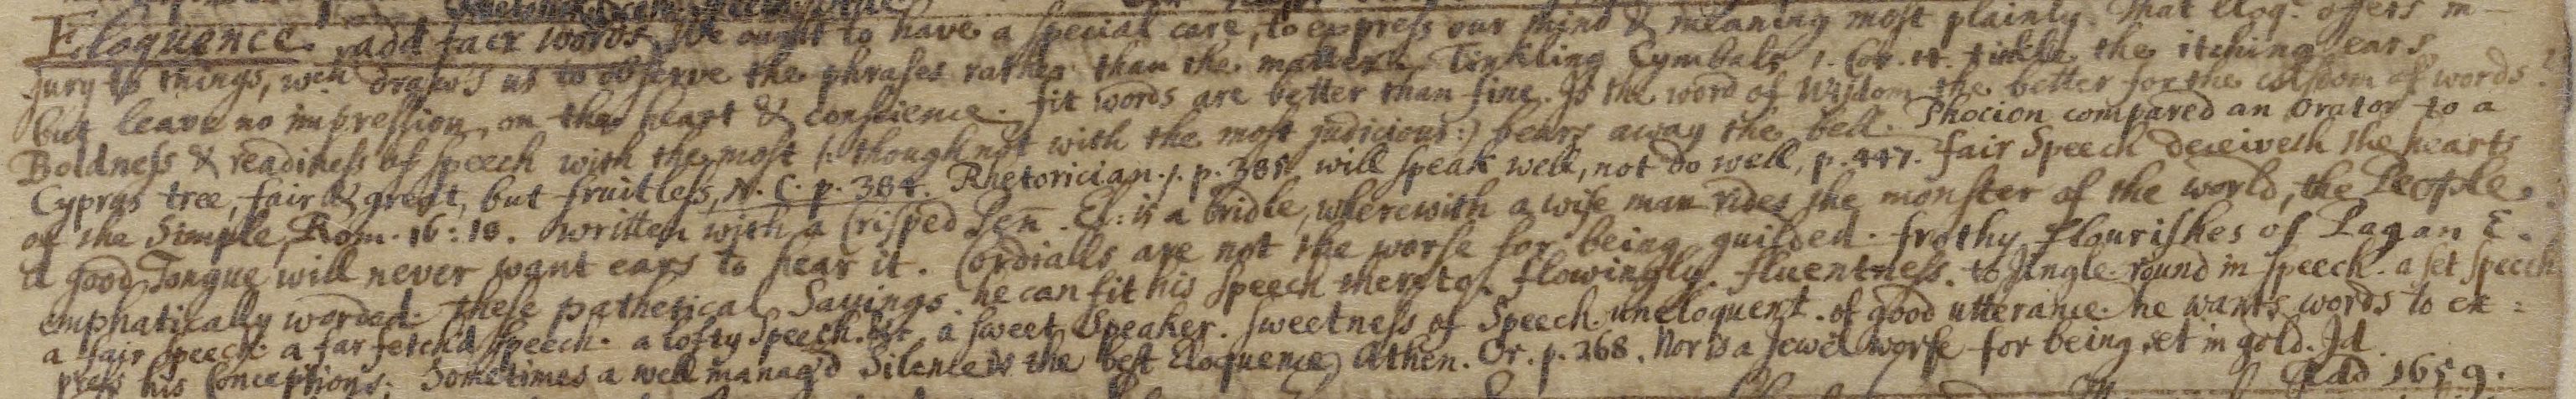 Eloquence. add fair words. We ought to have a special care, to express our mind & meaning most plainly. That Eloq. offers in-
jury to things, wch draws us to observe the phrases rather than the matter. Tinkling Cymbals, 1. Cor. 13. tinkle the itching ears
but leave no impression on the heart & conscience. fit words are better than fine. Is the word of Wisdom the better for the of words?
Boldness & readiness of speech with the most (: though not with the most judicious:) bears away the bell. Phocion compared an Orator to a
Cyprus tree, fair & great, but fruitless, N. C. p. 384. Rhetorician. /. p. 385 will speak well, not do well, p. 447. fair Speech deceiveth the hearts
of the Simple, Rom. 16: 18. written with a Crisped Pen. El: is a bridle, wherewith a wise man rides the monster of the world, the People.
a good Tongue will never want ears to hear it. Cordialls are not the worse for being guilded. frothy flourishes of Pagan E.
emphatically worded. these pathetical Sayings. he can fit his speech thereto. flowingly. fluentness. to Jingle. round in speech. a set speech
a fair speech. a far fetch'd speech. a lofty Speech. a sweet Speaker. sweetness of Speech. uneloquent. of good utterance. he wants words to ex=
press his Conceptions. Sometimes a well manag'd Silence is the best Eloquence, Athen. Or. p. 268. Nor is a Jewel worse for being set in gold. Id.
1659.